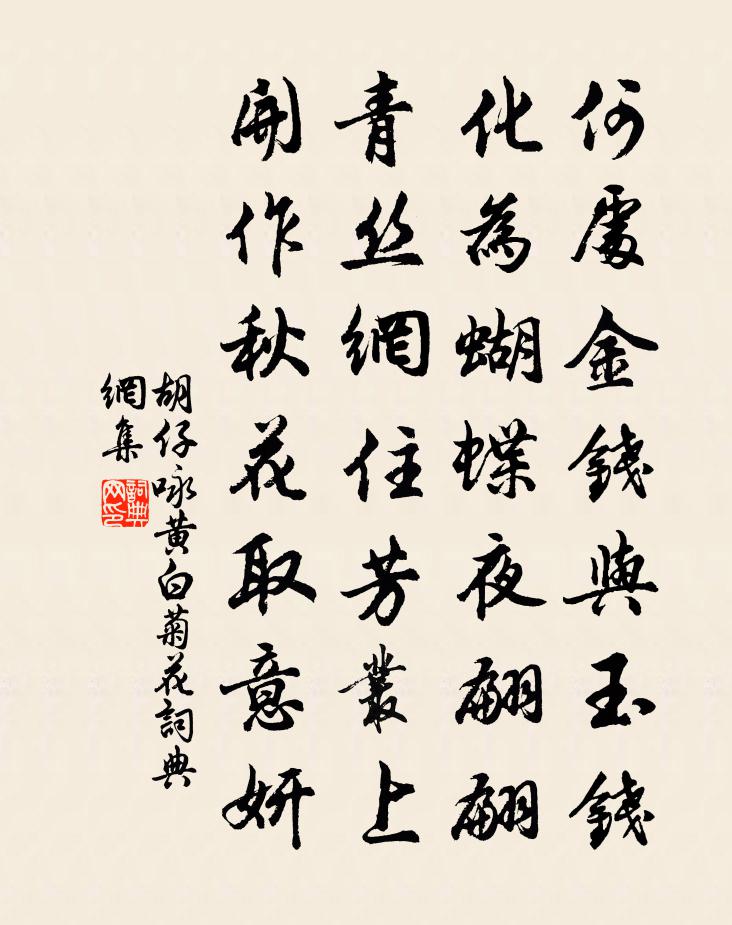 何處金錢與玉錢
化為蝴蝶夜翩翩
青丝網住芳叢上
開作秋花取意妍
胡仔咏黄白菊花詞典
網集
詞典网印